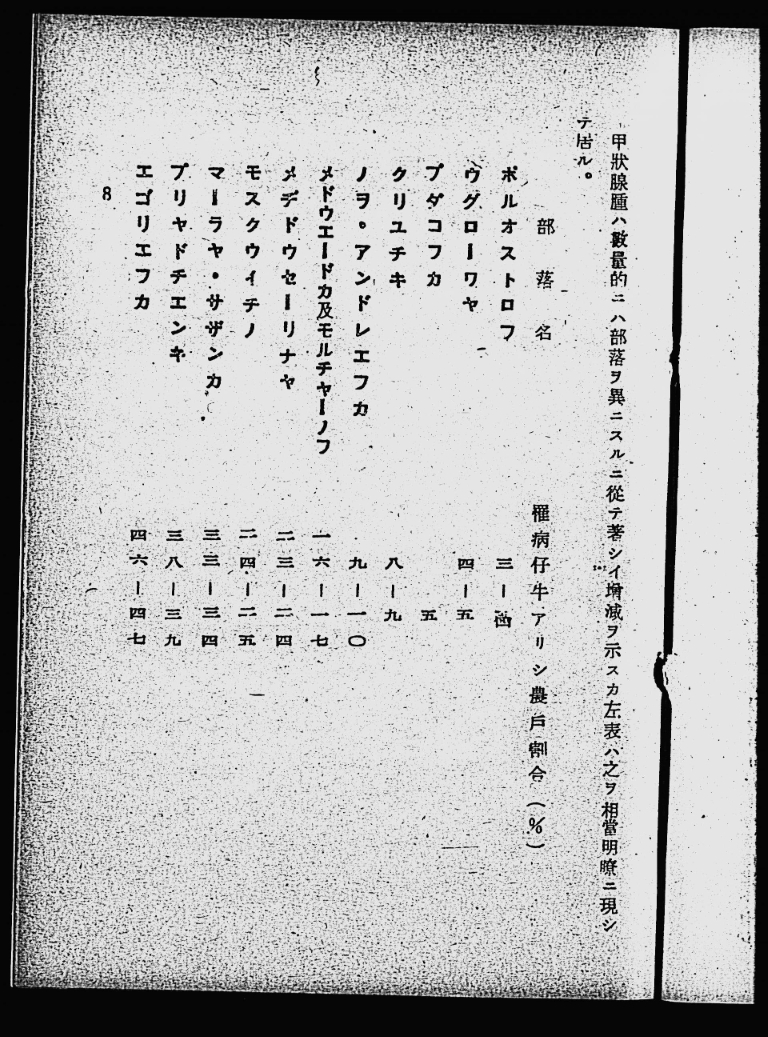 甲狀腺腫ハ數量的ニハ部落ヲ異ニスルニ從テ著シイ増減ヲ示スカ左表ハ之ヲ相當明瞭ニ現シ
テ居ル。
部落名 罹病仔牛アリシ農戸割合(%)
ポルオストロフ 三―四
ウグローワヤ 四―五
プダコフカ 五
クリユチキ 八―九
ノヲ。アンドレエフカ 九―一〇
メドウエードカ及モルチヤーノフ 一六―一七
メデドウセーリナヤ 二三―二四
モスクウイチノ 二四―二五
マーラヤ・サザンカ 三三―三四
プリヤドチエンネ 三八―三九
エゴリエフカ 四六―四七
8